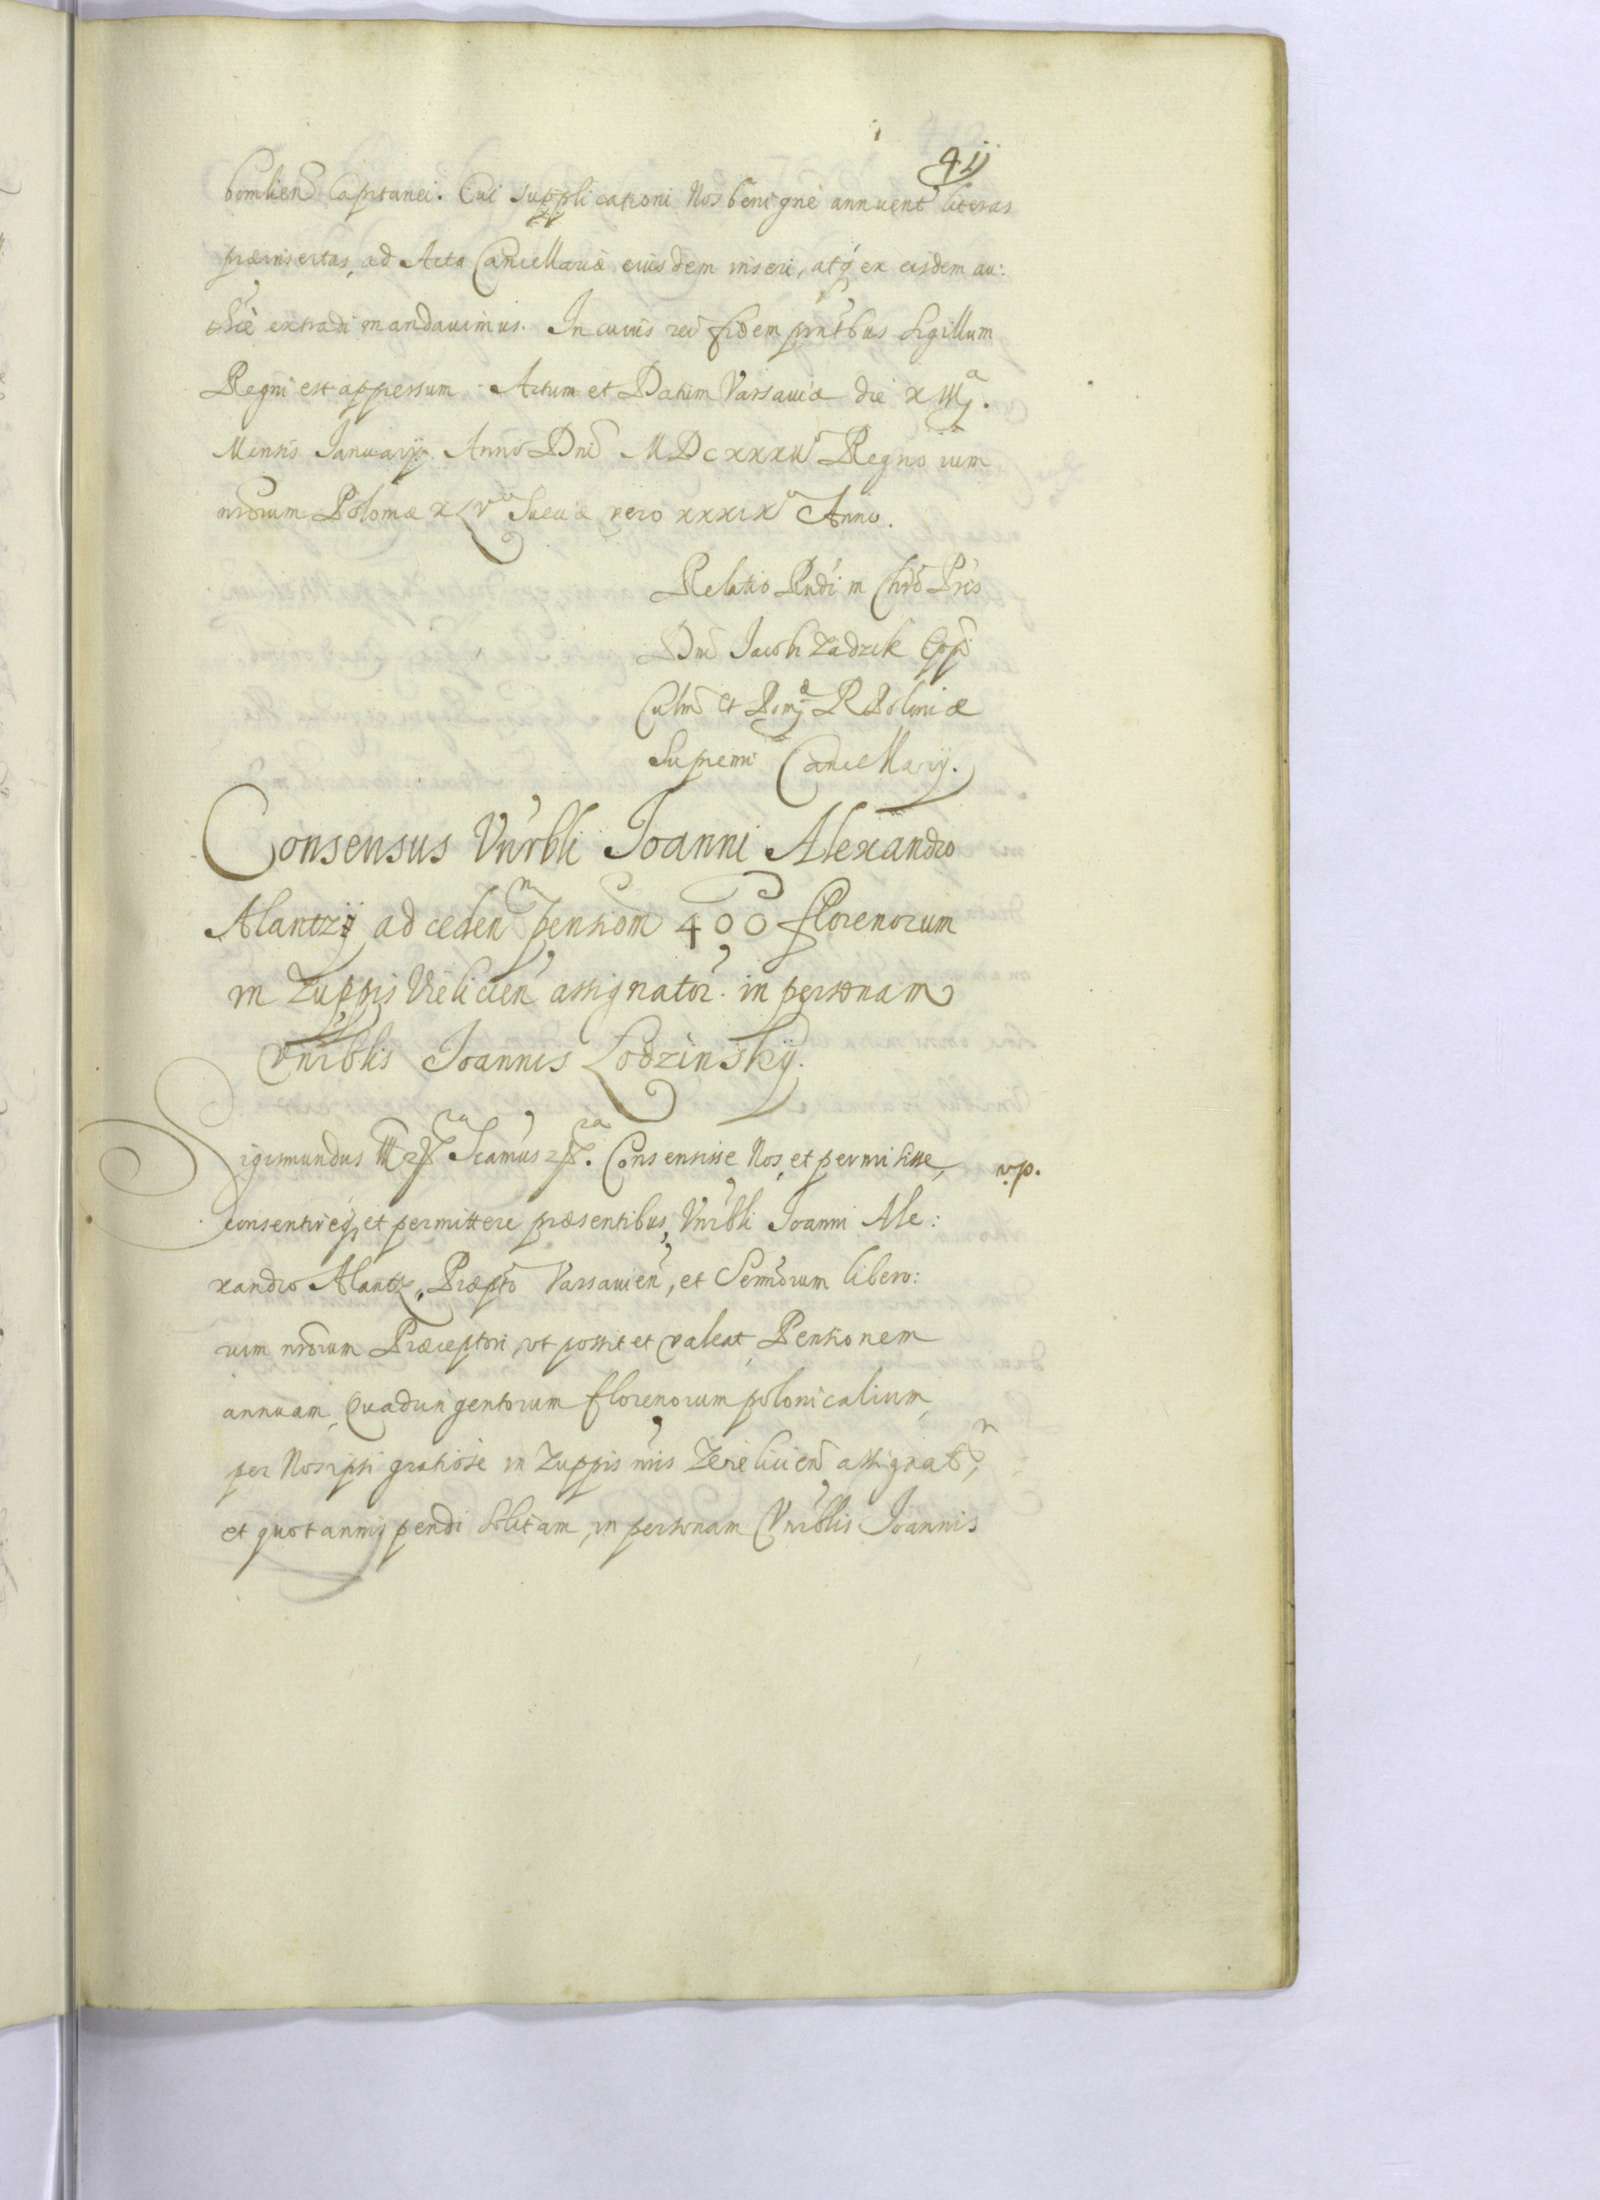 41
bomlien Capitanei. Cui supplicationi Nos benigne annuent literas
præinsertas, ad Acta Cancellariæ eiusdem inseri, atq ex eisdem au:
thæ extradi mandauimus. In cuius rei fidem pntbus Sigillum
Regni est appressum. Actum et Datum Varsauiæ die
Mensis Ianuarij Anno Dni Regno rum
nrorum Poloniæ XLV Sueciæ vero XXXIX Anno.
Relatio Rndi in Chro Pris
Dni Iacobi Zadzik Eppi
Culm et Pom R Poloniæ
Supremi Cancellarij.
Consensus Vnrbli Ioanni Alexandro
Alantzÿ ad ceden pensiom 400 florenorum
in Zuppis Vielicien assignator. in personam
Vnrblis Ioannis Lodzinskÿ.
Sigismundus III Scamus Consensisse Nos, et permisisse,
v.p.
consentireq, et permittere præsentibus, Vnrbli Ioanni Ale:
xandro Alantz, Præpto Varsauien, et Sermorum libero:
rum nrorum Præceptori, vt possit et valeat Pensionem
annuam, Quadringentorum florenorum polonicalium,
per Nos ipsi gratiose in Zuppis nris assignat,
et quotannis pendi solitam, in personam Vnrblis Ioannis